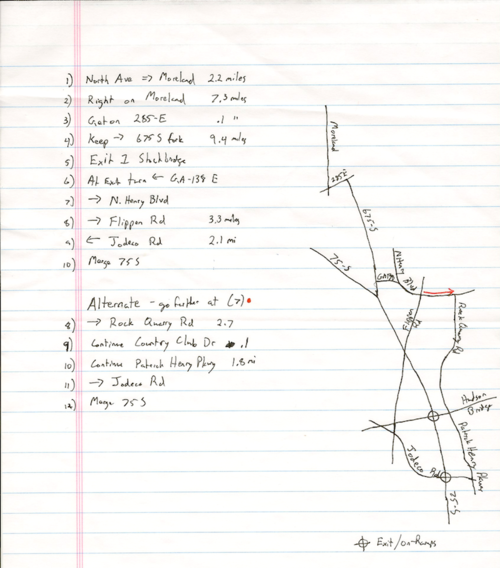 1) North Ave => Moreland 2.2 miles
2) Right on Moreland 7.3 miles
3) Get on 285-E .1 "
4) Keep → 675 S fork 9.4 miles
5) Exit 1 Stockbridge
6) At Exit turn ← GA-138 E
7) → N. Henry Blvd
8) → Flippen Rd 3.3 miles
9) ← Jodeco Rd 2.1 mi
10) Merge 75 S
Alternate - go further at (7)
8) → Rock Quarry Rd 2.7
9) Continue Country Club Dr .1
10) Continue Patrick Henry Pkwy 1.8 mi
11) → Jodeco Rd
12) Merge 75 S
Moreland
285E
675-S
75-S
GA138
N Henry Blvd
Flippen Rd
Rock Quarry Rd
Hudson Bridge
Patrick Henry Pkwy
Jodeco Rd
75-S
Exit/on-Ramps